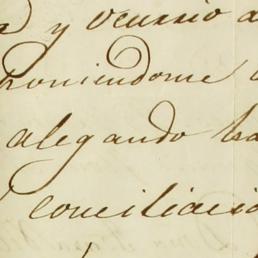 y ocurrio a
poniendome
alegando ha
conciliacio